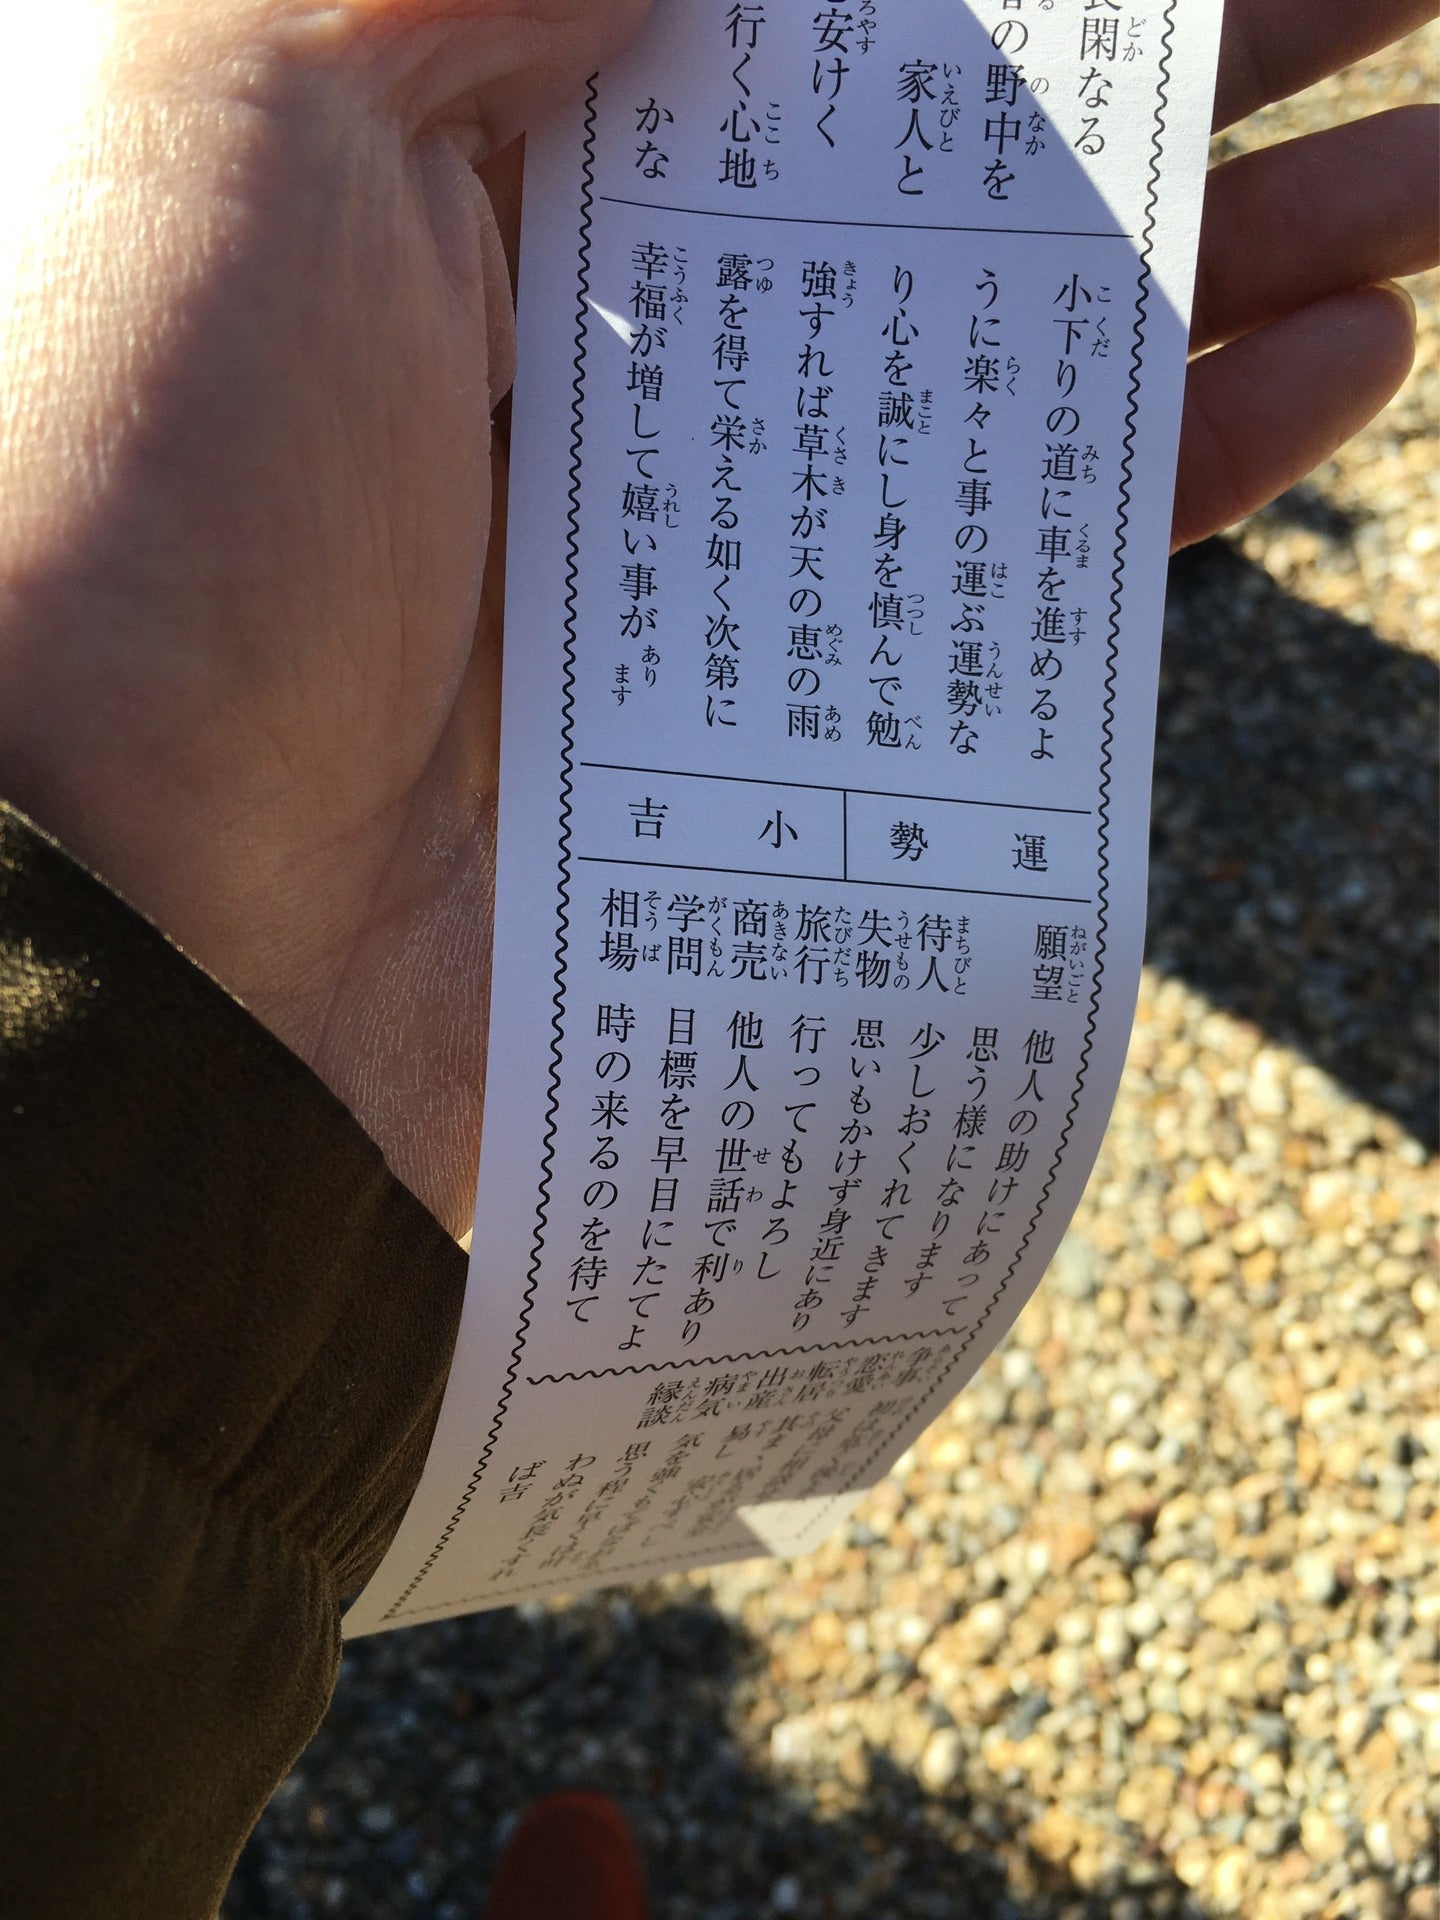 閑なる
の野中を
家人と
安けく
行く心地
かな
小下りの道に車を進めるよ
うに楽々と事の運ぶ運勢な
り心を誠にし身を慎んで勉
強すれば草木が天の恵の雨
露を得て栄える如く次第に
幸福が増して嬉い事があります
運勢
小吉
願望 他人の助けにあって
思う様になります
待人 少しおくれてきます
失物 思いもかけず身近にあり
旅行 行ってもよろし
商売 他人の世話で利あり
学問 目標を早目にたてよ
相場 時の来るのを待て
争事
恋愛
転居
出産
病気
縁談 思う程に早くは
わぬが気長くすれ
ば吉